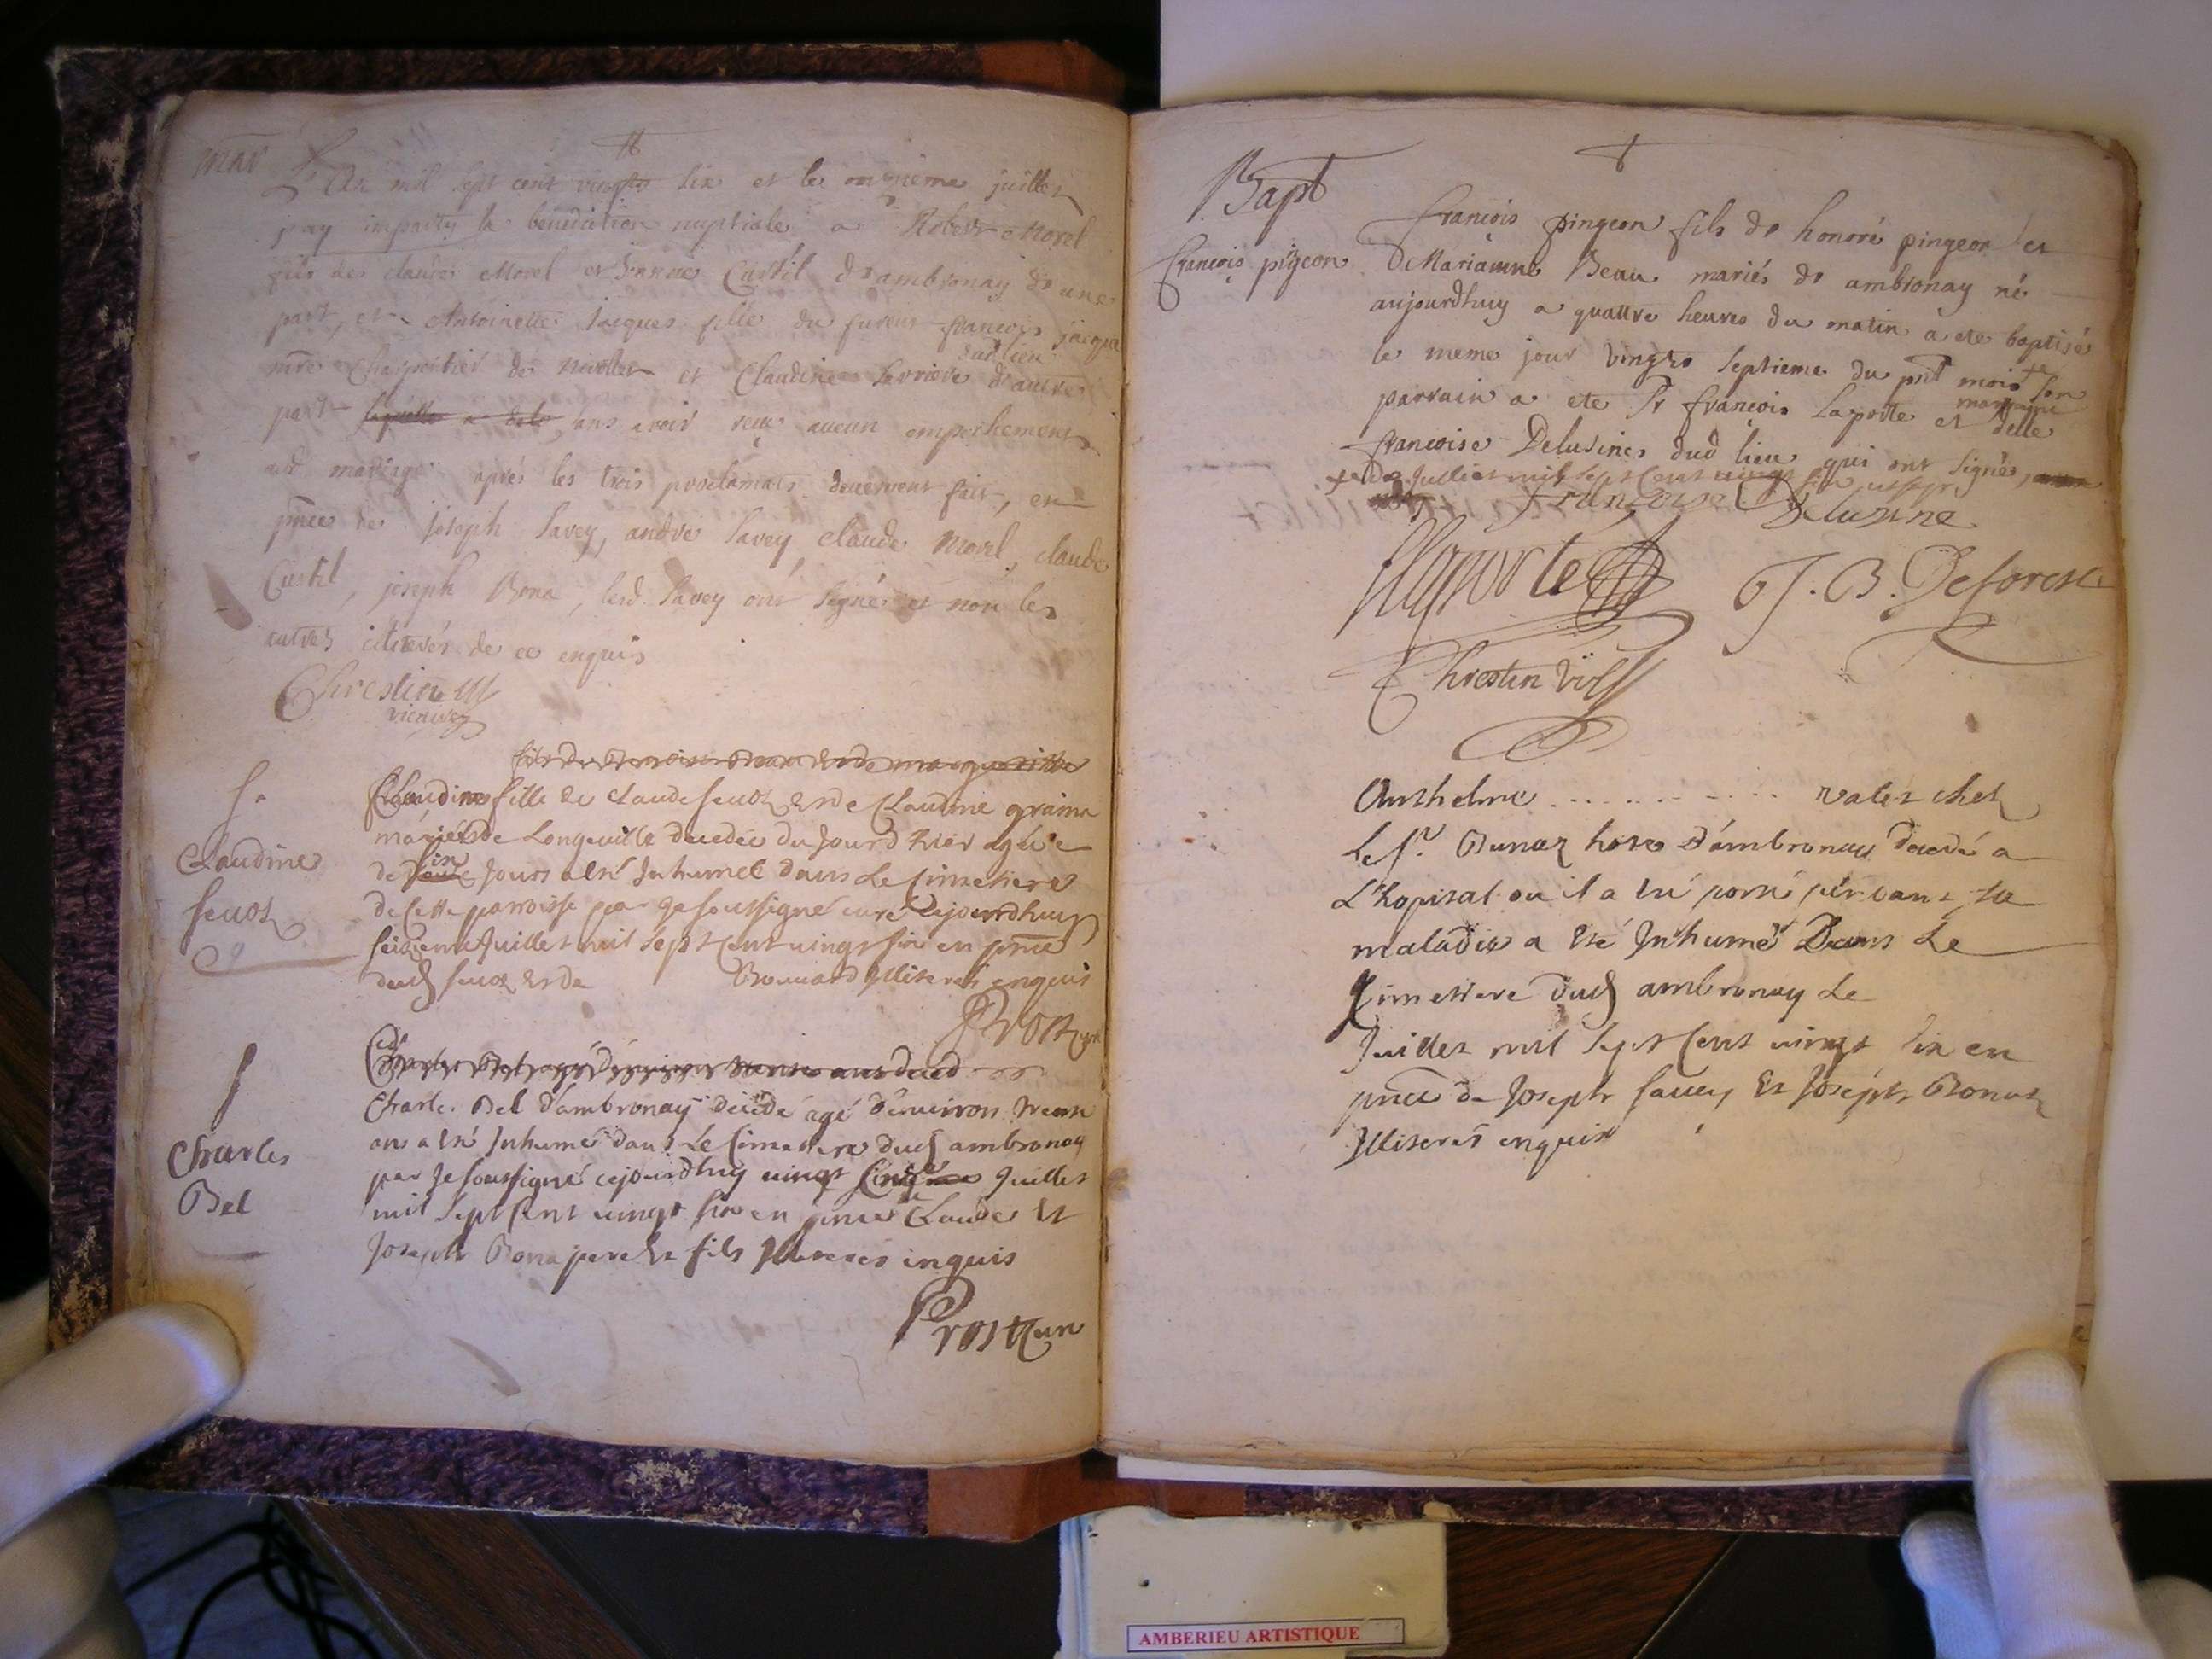 mar
L'an mil sept cent vingts six et le onzieme juillet
j'ay imparty la benediction nuptiale a Morel
fils de claude Morel et Castil d'ambronay d'une
part, et Antoinette Jacques fille du furent francois jacque
mre Charpentier de nivollet et Claudine d'autre
dud lieu
part sans avoir aucun empechement
aud mariage après les trois proclamats deuement fait, en
pnce de joseph Savey, andré Savey, claude Morel, claude
Castil, joseph Bona, lesd. Savey ont signés et non les
autres illiterés de ce enquis
Chrestin
vicaire
S.
Claudine
feuoz
Claudine fille de Claude feuoz et de Claudine
mariés de Longeville decedée du Jourd'hier agée
de six Jours a esté Inhumée dans Le Cimetiere
de Cette parroisse par Je soussigné curé cejourdhuy
seizieme Juillet mil sept Cent vingt six en pnce
dud feuoz et de Bouuard Illiterés enquis
Prost curé
S
Charles
Bel
Charle Bel d'ambronay decedé agé d'enuiron trente
ans a esté Inhumé dans Le Cimettiere dud ambronay
par Je soussigné cejourdhuy vingt Juillet
mil sept Cent vingt six en pnce Claude et
Joseph Bona pere et fils Illiterés inquis
Prost curé
Bapt
francois pigeon
francois pingeon fils de honoré pingeon et
De Marianne Beau mariés de ambronay né
aujourdhuy a quattre heures du matin a ete baptisé
le meme jour vingts septieme du pnt mois son
parrain a ete Sr francois Laporte et marraine delle
francoise Delusines dud lieu qui ont signés,
de Julliet mil sept Cent vingt six
Francoise Delusine
Laporte J. B. Deforest
Chrestin vic
Anthelme ............ valet chez
Le sr. Bunoz hote d'ambronay decedé a
L'hopital ou il a été porté pendant sa
maladie a eté Inhumé Dans Le
Cimetiere dud ambronay Le
Juillet mil sept Cent vingt six en
pnce de Joseph sauey et Joseph Bonaz
Illiterés enquis
AMBERIEU ARTISTIQUE